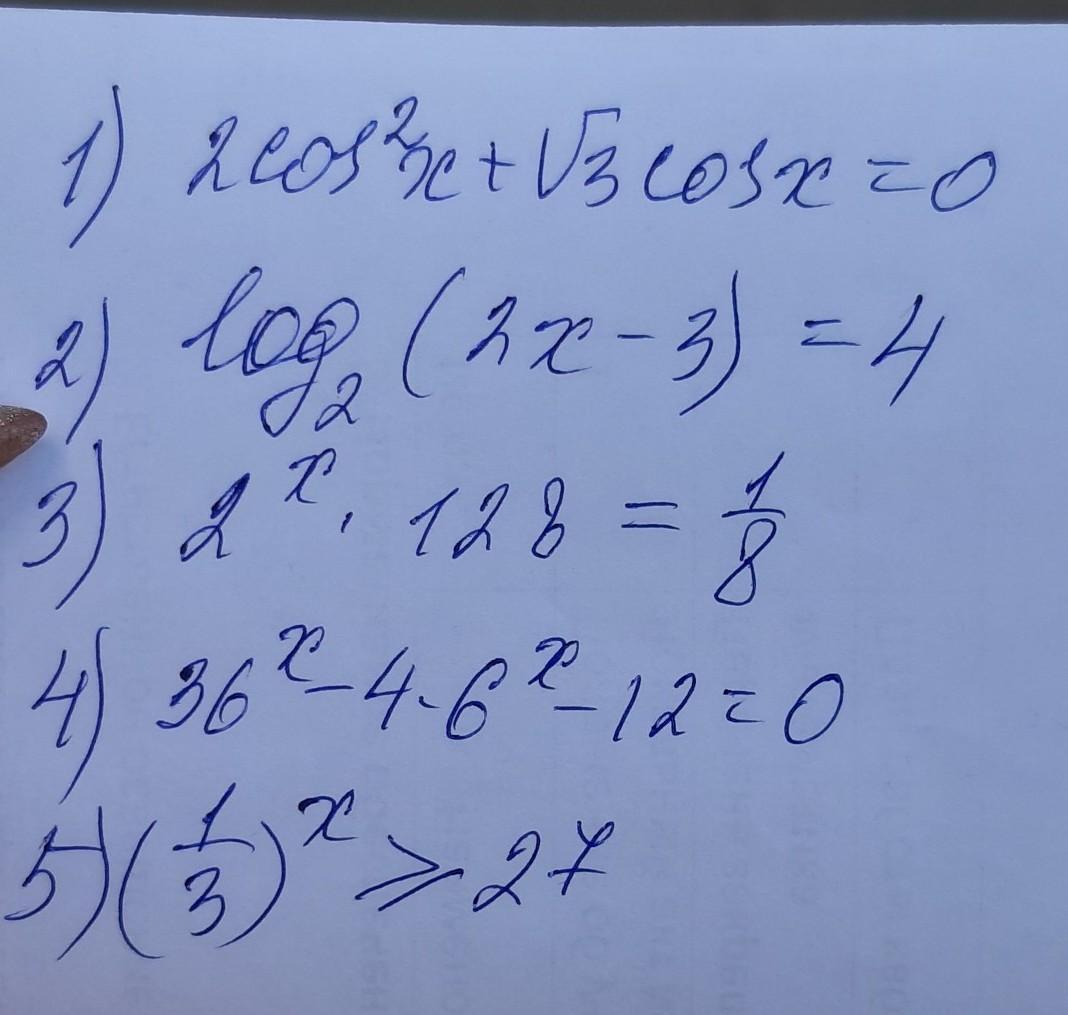 1) 2cos²x + √3 cosx = 0
2) log₂ (2x - 3) = 4
3) 2ˣ · 128 = 1/8
4) 36ˣ - 4 · 6ˣ - 12 = 0
5) (1/3)ˣ ⩾ 27